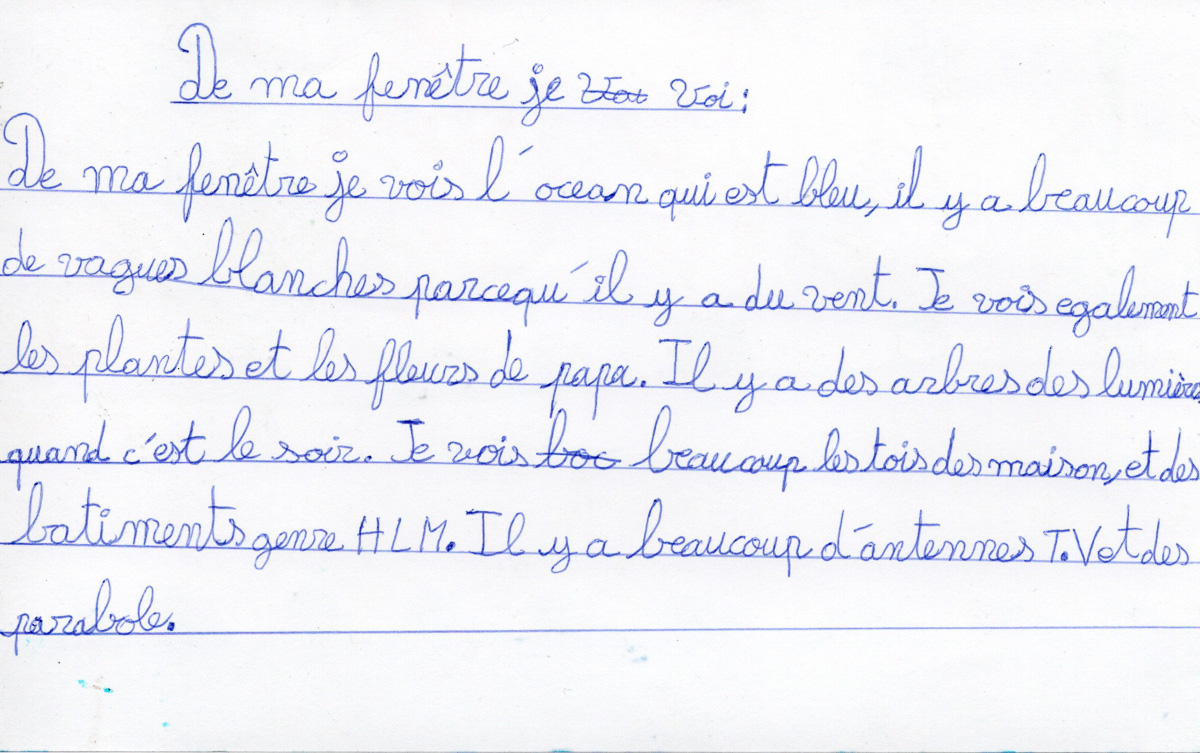 De ma fenêtre je voi:
De ma fenêtre je vois l'ocean qui est bleu, il y a beaucoup
de vagues blanches parcequ'il y a du vent. Je vois egalement
les plantes et les fleurs de papa. Il y a des arbres des lumières
quand c'est le soir. Je vois beaucoup les tois des maison, et des
batiments genre HLM. Il y a beaucoup d'antennes T.V et des
parabole.